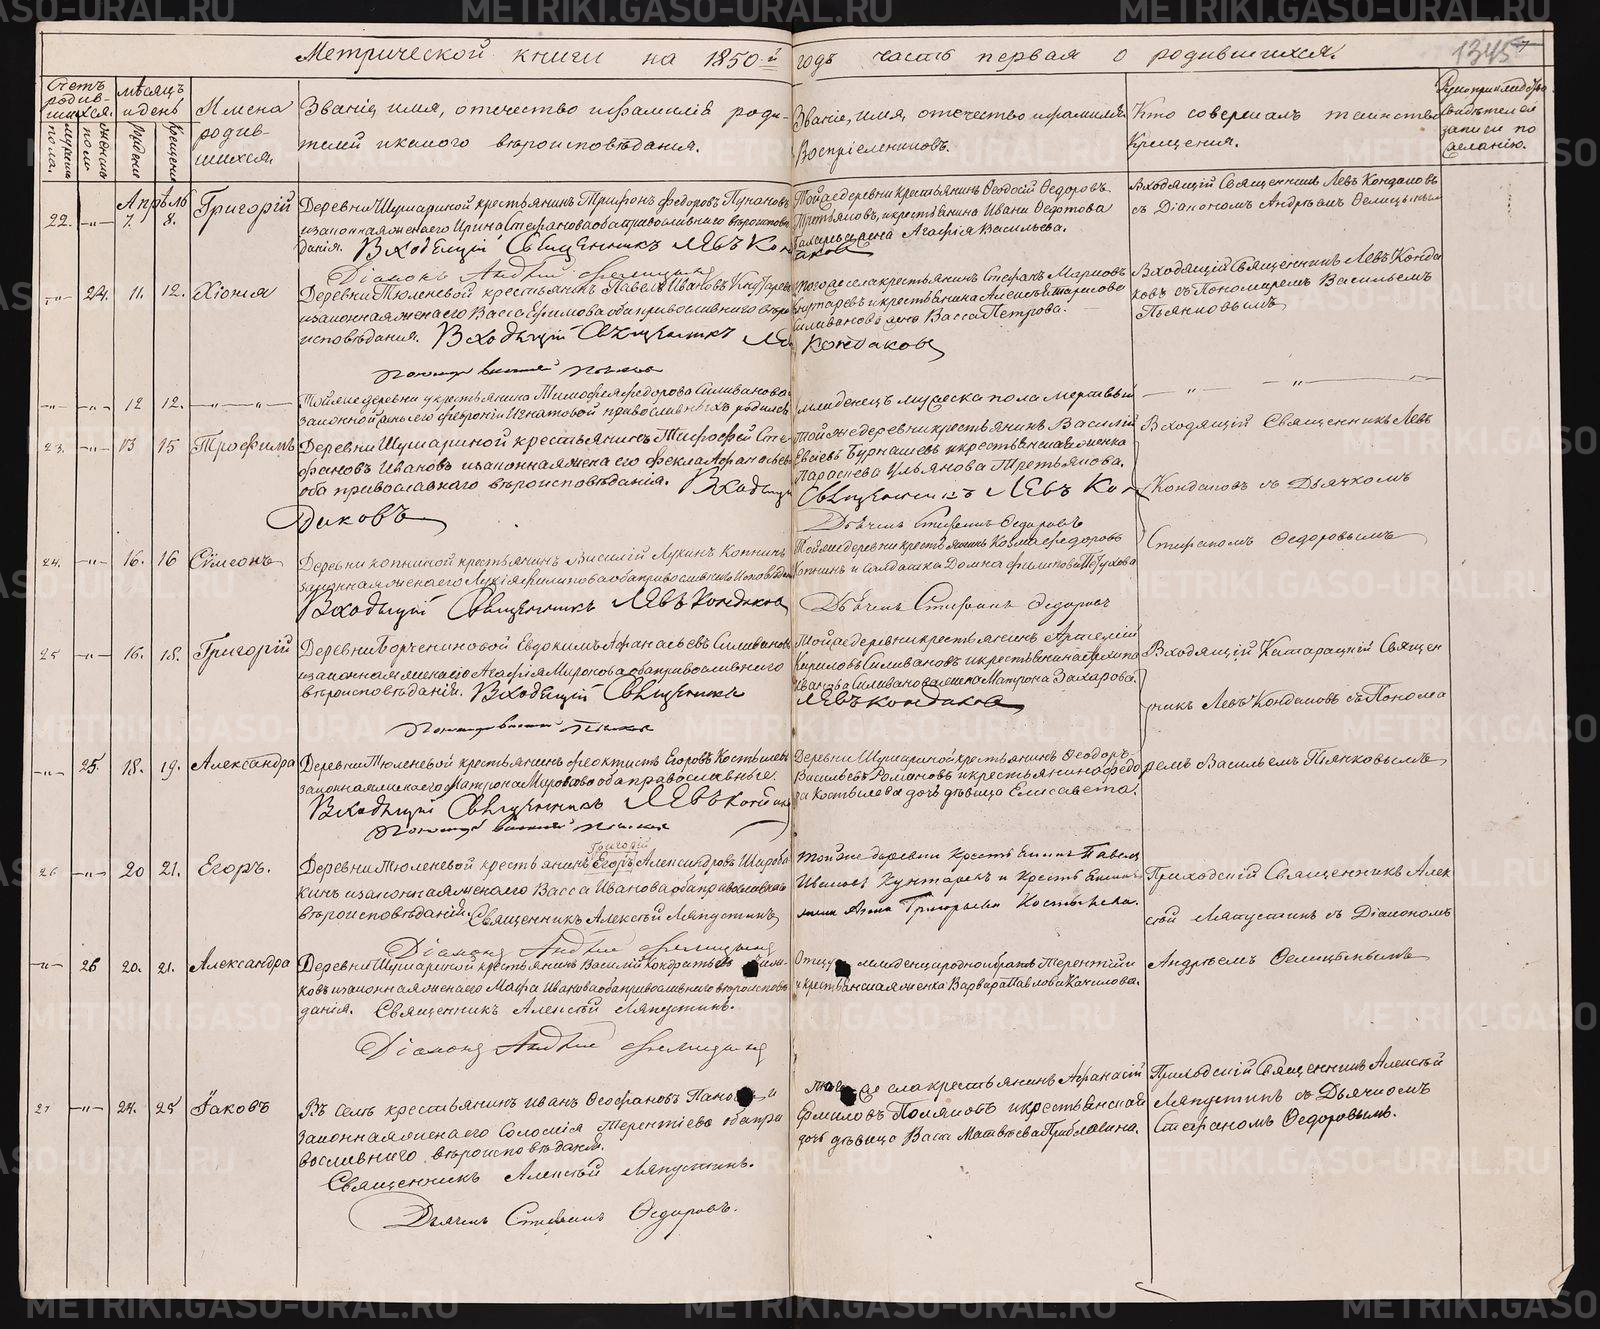 Метрической книги на 1850-й годъ часть первая о родившихся.
1345
Счетъ родившихся.
мужеска пола.
женска пола
мѣсяцъ и день
рожденія
крещенія
Имена родившихся.
Званіе, имя, отечество и фамилія роди-
телей и какого вѣроисповѣданія.
Званіе, имя, отечество и фамилія
Воспріемниковъ.
Кто совершалъ таинство
Крещенія.
Рукоприкладство
свидѣтелей
записи по
желанію.
Апрѣль
22. 7. 8. Григорій
Деревни Шушариной крестьянинъ Трифонъ Федоровъ
и законная жена его Ирина Стефанова оба православнаго вѣроиспове
данія. Входящій Священникъ Левъ Кондаковъ
Діаконъ Андрей
Тойже деревни крестьянинъ Феодосій Федоровъ
Третьяковъ, и крестьянина Ивана Федотова
жена Агафія Васильева.
Входящій Священникъ Левъ Кондаковъ
съ Діакономъ Андреемъ
24. 11. 12. Хіонія
Деревни Тюленевой крестьянинъ Павелъ Ивановъ Кунгаревъ
и законная жена его Васса Ефимова оба православнаго вѣро
исповѣданія. Входящій Священникъ Левъ Кондаковъ
тогоже села крестьянинъ Стефанъ Марковъ
Кунгаревъ и крестьянина Алексѣя
Силиванова жена Васса Петрова.
Входящій Священникъ Левъ Конда
ковъ съ Пономаремъ Васильемъ
Пьянковымъ
12 12.
Тойже деревни у крестьянина Тимофея Федорова Силиванова
законной жены его Февроніи Игнатовой православныхъ родился
младенецъ мужеска пола мертвый
23. 13 15 Трофимъ
Деревни Шушариной крестьянинъ Тимофей Сте-
фановъ Ивановъ и законная жена его Фекла Афанасьева
оба православнаго вѣроисповѣданія. Входящій
Священникъ Левъ Кон
даковъ
Тойже деревни крестьянинъ Василій
Бурнашевъ и крестьянская женка
Параскева Ульянова Третьякова.
Дьячекъ Стефанъ Федоровъ
Входящій Священникъ Левъ
Кондаковъ съ Дьячкомъ
Стефаномъ Федоровымъ
24. 16. 16 Сѷмеонъ
Деревни Копниной крестьянинъ Василій Лукинъ Копнинъ
законная жена его Лукія Филипова оба православнаго исповѣданія
Входящій Священникъ Левъ Кондаковъ
Тойже деревни крестьянинъ Козма Федоровъ
Копнинъ и солдатка Домна Филипова Пѣтухова
Дьячекъ Стефанъ Федоровъ
25 16. 18. Григорій
Деревни Борчениновой Евдокимъ Афанасьевъ Силивановъ
и законная жена его Агафія Миронова оба православнаго
вѣроисповѣданія. Входящій Священникъ
Левъ Кондаковъ
Тойже деревни крестьянинъ
Кириловъ Силивановъ и крестьянина Архипа
Иванова Силиванова жена Матрона Захарова.
Входящій Катарацкій Священ
никъ Левъ Кондаковъ съ Понома
ремъ Васильемъ Пьянковымъ
25. 18. 19. Александра
Деревни Тюленевой крестьянинъ Феоктистъ Егоровъ Костылевъ
законная жена его Матрона Миронова оба православные.
Входящій Священникъ Левъ Кондаковъ
Деревни Шушариной крестьянинъ Феодоръ
Васильевъ Романовъ и крестьянина Федо
ра Костылева дочь дѣвица Елисавета.
26 20 21. Егоръ.
Григорій
Деревни Тюленевой крестьянинъ Егоръ Александровъ Широба
кинъ и законная жена его Васса Иванова оба православнаго
вѣроисповѣданій. Священникъ Алексѣй Ляпустинъ
Діаконъ Андрей
Тойже деревни крестьянинъ Павелъ
Ивановъ Кунгаревъ и крестьянина
жена Анна Григорьева Костылева.
Приходскій Священникъ Алек
сѣй Ляпустинъ съ Діакономъ
Андреемъ
26 20. 21. Александра
Деревни Шушариной крестьянинъ Василій Кондратьевъ
ковъ и законная жена его Марфа Иванова оба православнаго вѣроисповѣ
данія. Священникъ Алексѣй Ляпустинъ.
Діаконъ Андрей
Отцу младенца родной братъ Терентій
и крестьянская женка Варвара Павлова Качилова.
27 24. 25 Іаковъ
Въ селѣ крестьянинъ Иванъ Феофановъ
законная жена его Соломія Терентіева оба пра
вославнаго вѣроисповѣданій.
Священникъ Алексѣй Ляпустинъ.
Дьячекъ Стефанъ Федоровъ.
тогоже села крестьянинъ Афанасій
Поляковъ и крестьянская
дочь дѣвица Васса Матвѣева
Приходскій Священникъ Алексѣй
Ляпустинъ съ Дьячкомъ
Стефаномъ Федоровымъ.
METRIKI.GASO-URAL.RU